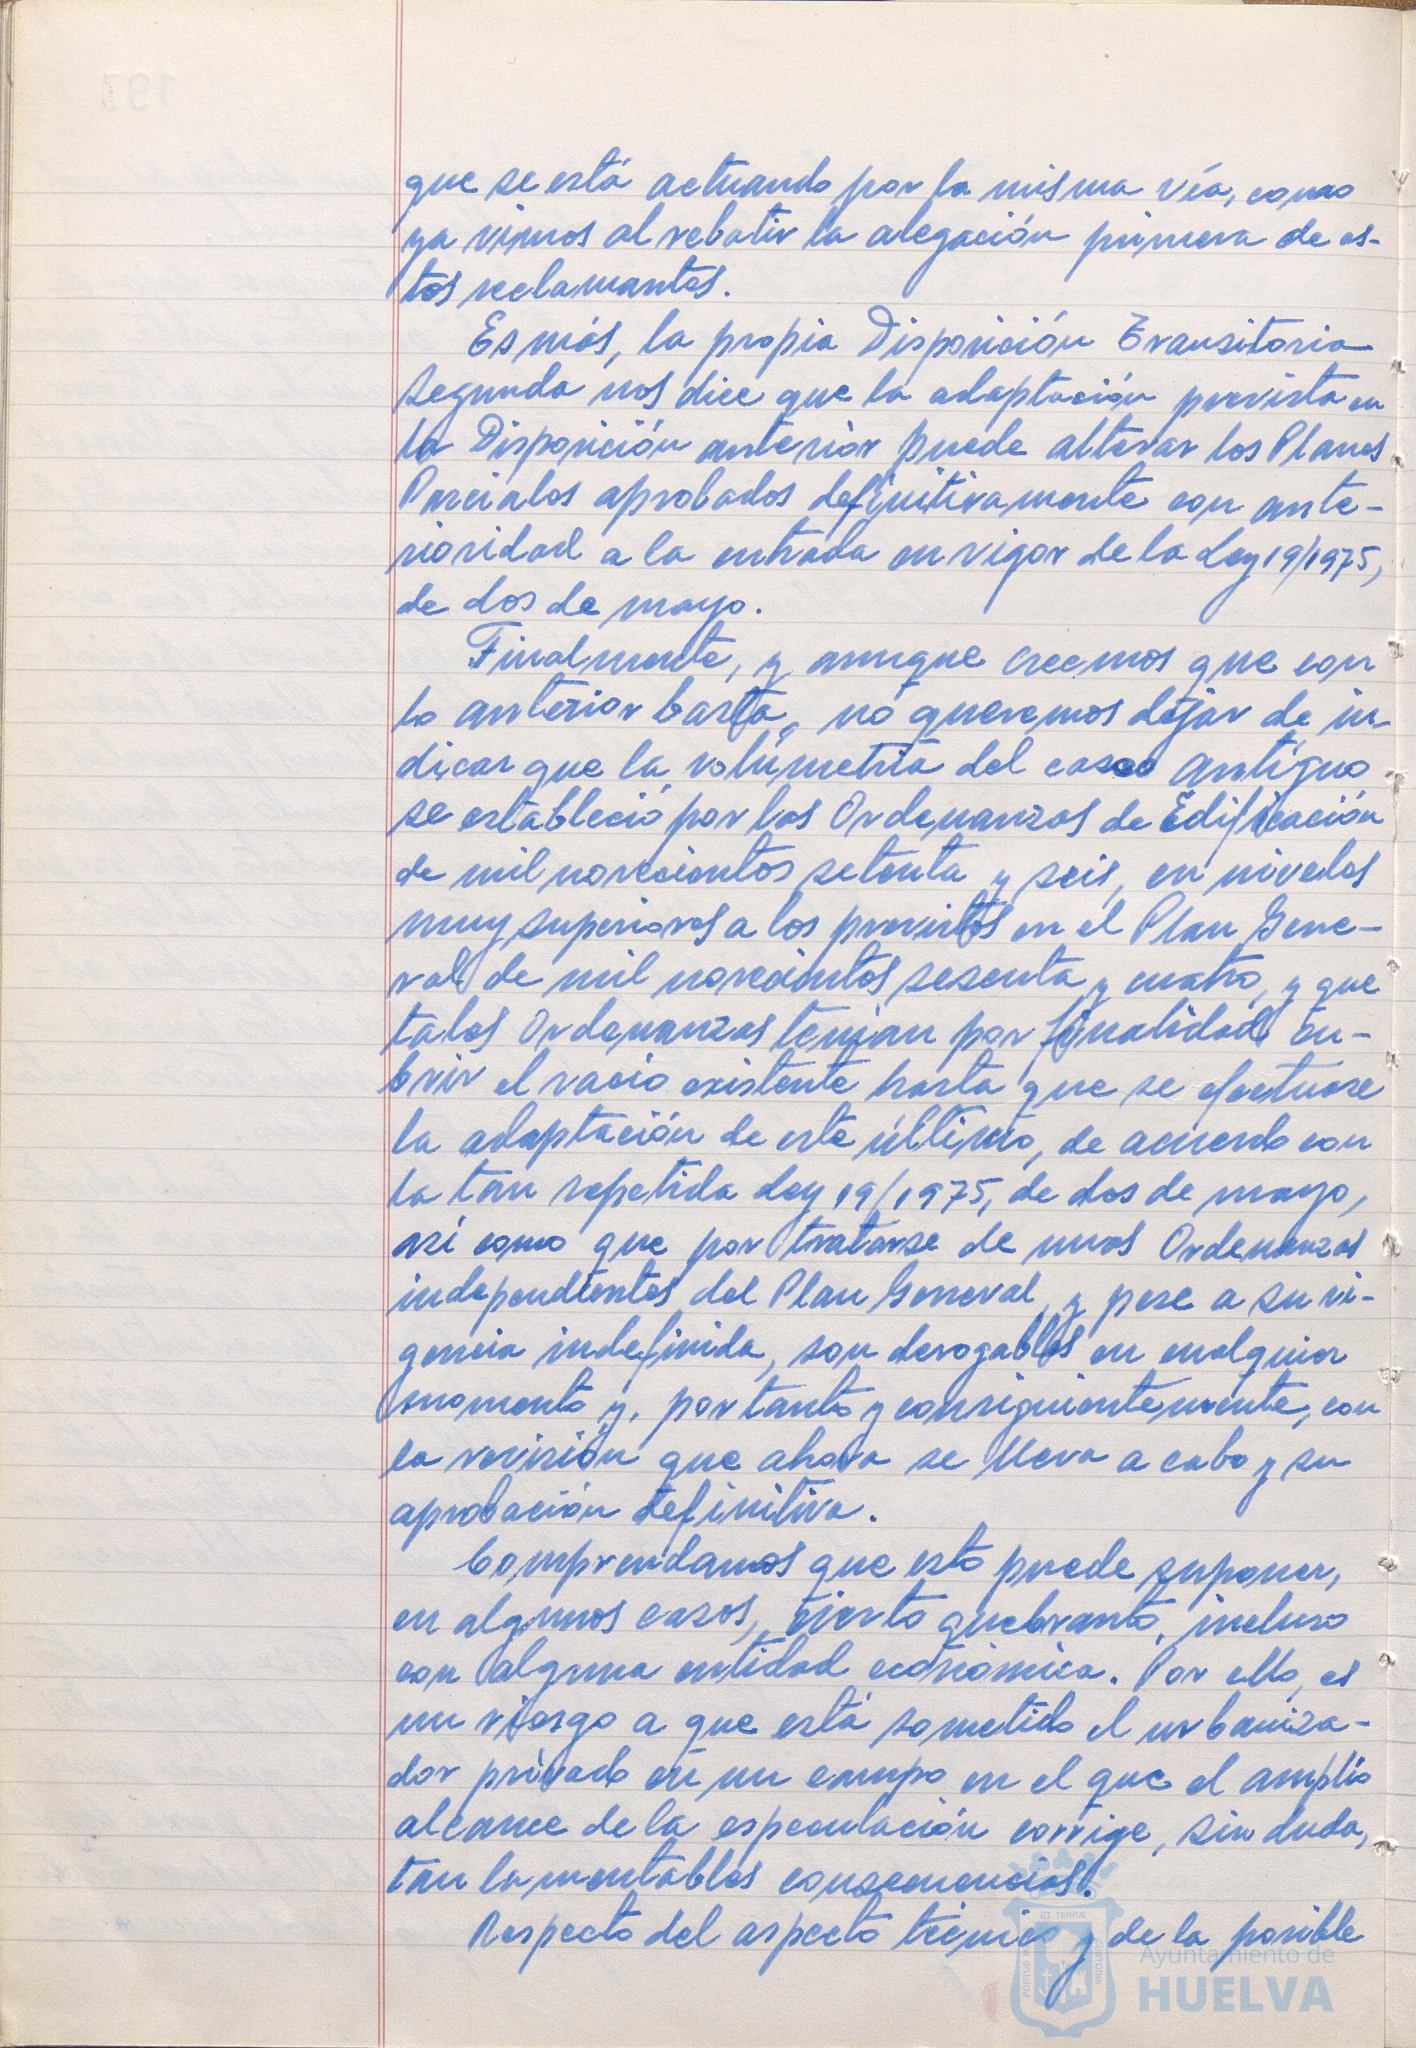 que se está actuando por la misma vía, como
ya vimos al rebatir la alegación primera de es-
tos reclamantes.
Es más, la propia Disposición Transitoria
Segunda nos dice que la adaptación prevista en
la Disposición anterior puede alterar los Planes
Parciales aprobados definitivamente con ante-
rioridad a la entrada en vigor de la Ley 19/1975,
de dos de mayo.
Finalmente, y aunque creemos que con
lo anterior basta, no queremos dejar de in-
dicar que la volúmetria del casco antíguo
se estableció por las Ordenanzas de Edificación
de mil novecientos setenta y seis, en niveles
muy superiores a los previstos en el Plan Gene-
ral de mil novecientos sesenta y cuatro, y que
tales Ordenanzas tenían por finalidad cu-
brir el vacío existente hasta que se efectuase
la adaptación de este último, de acuerdo con
la tan repetida Ley 19/1975, de dos de mayo,
así como que por tratarse de unas Ordenanzas
independientes del Plan General, y pese a su vi-
gencia indefinida, son derogables en cualquier
momento y, por tanto y consiguientemente, con
la revisión que ahora se lleva a cabo y su
aprobación definitiva.
Comprendamos que esto puede suponer,
en algunos casos, cierto quebranto, incluso
con alguna entidad económica. Por ello, es
un riesgo a que está sometido el urbaniza-
dor privado en un campo en el que el amplio
alcance de la especulación corrige, sin duda,
tan lamentables consecuencias.
Respecto del aspecto técnico y de la posible
ET TERRAE
CUSTODIA
Ayuntamiento de
HUELVA